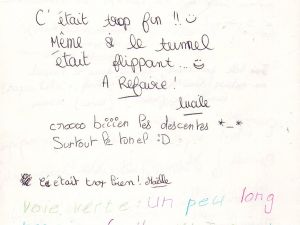 C'était trop fun !! ☺
Même si le tunnel
était flippant... ☺
A Refaire !
Lucile
crocoo biiien les descentes *_*
Surtout le tonel :D
C'était trop bien ! Maëlle
Voie verte : Un peu long